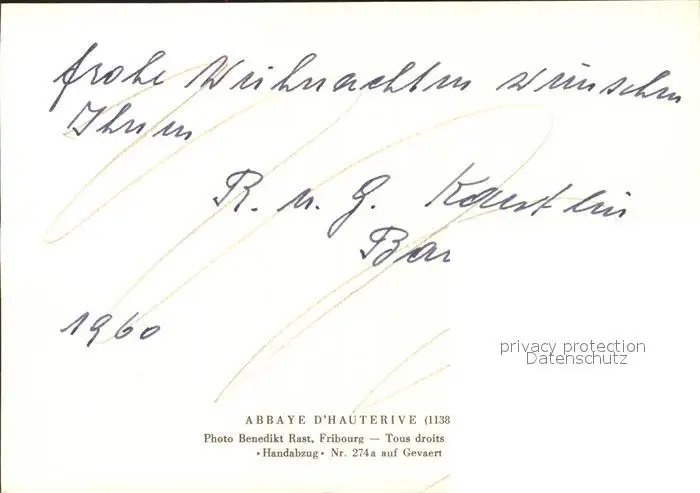 frohe Weihnachten wünschen
Ihnen
R. u. G. Kaestlin
Bar
1960
privacy protection
Datenschutz
ABBAYE D'HAUTERIVE (1138
Photo Benedikt Rast, Fribourg — Tous droits
•Handabzug• Nr. 274a auf Gevaert